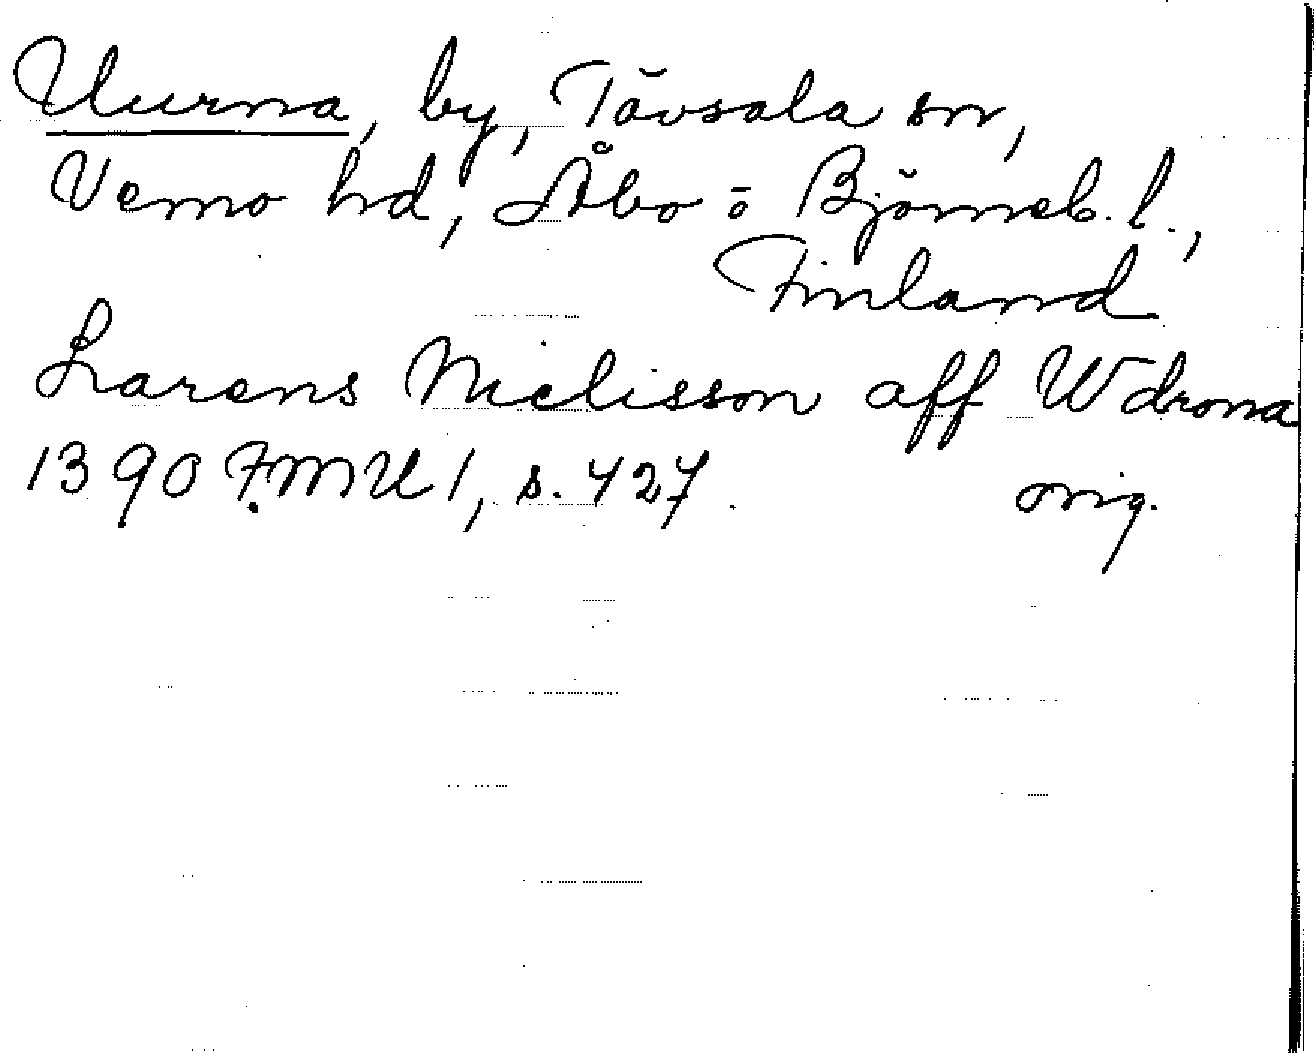 Uurna, by, Tövsala sn,
Vemo hd, Åbo o Björneb. l.,
Finland
Larens Niclisson aff Wdrona
1390 FMU 1, s. 427. orig.